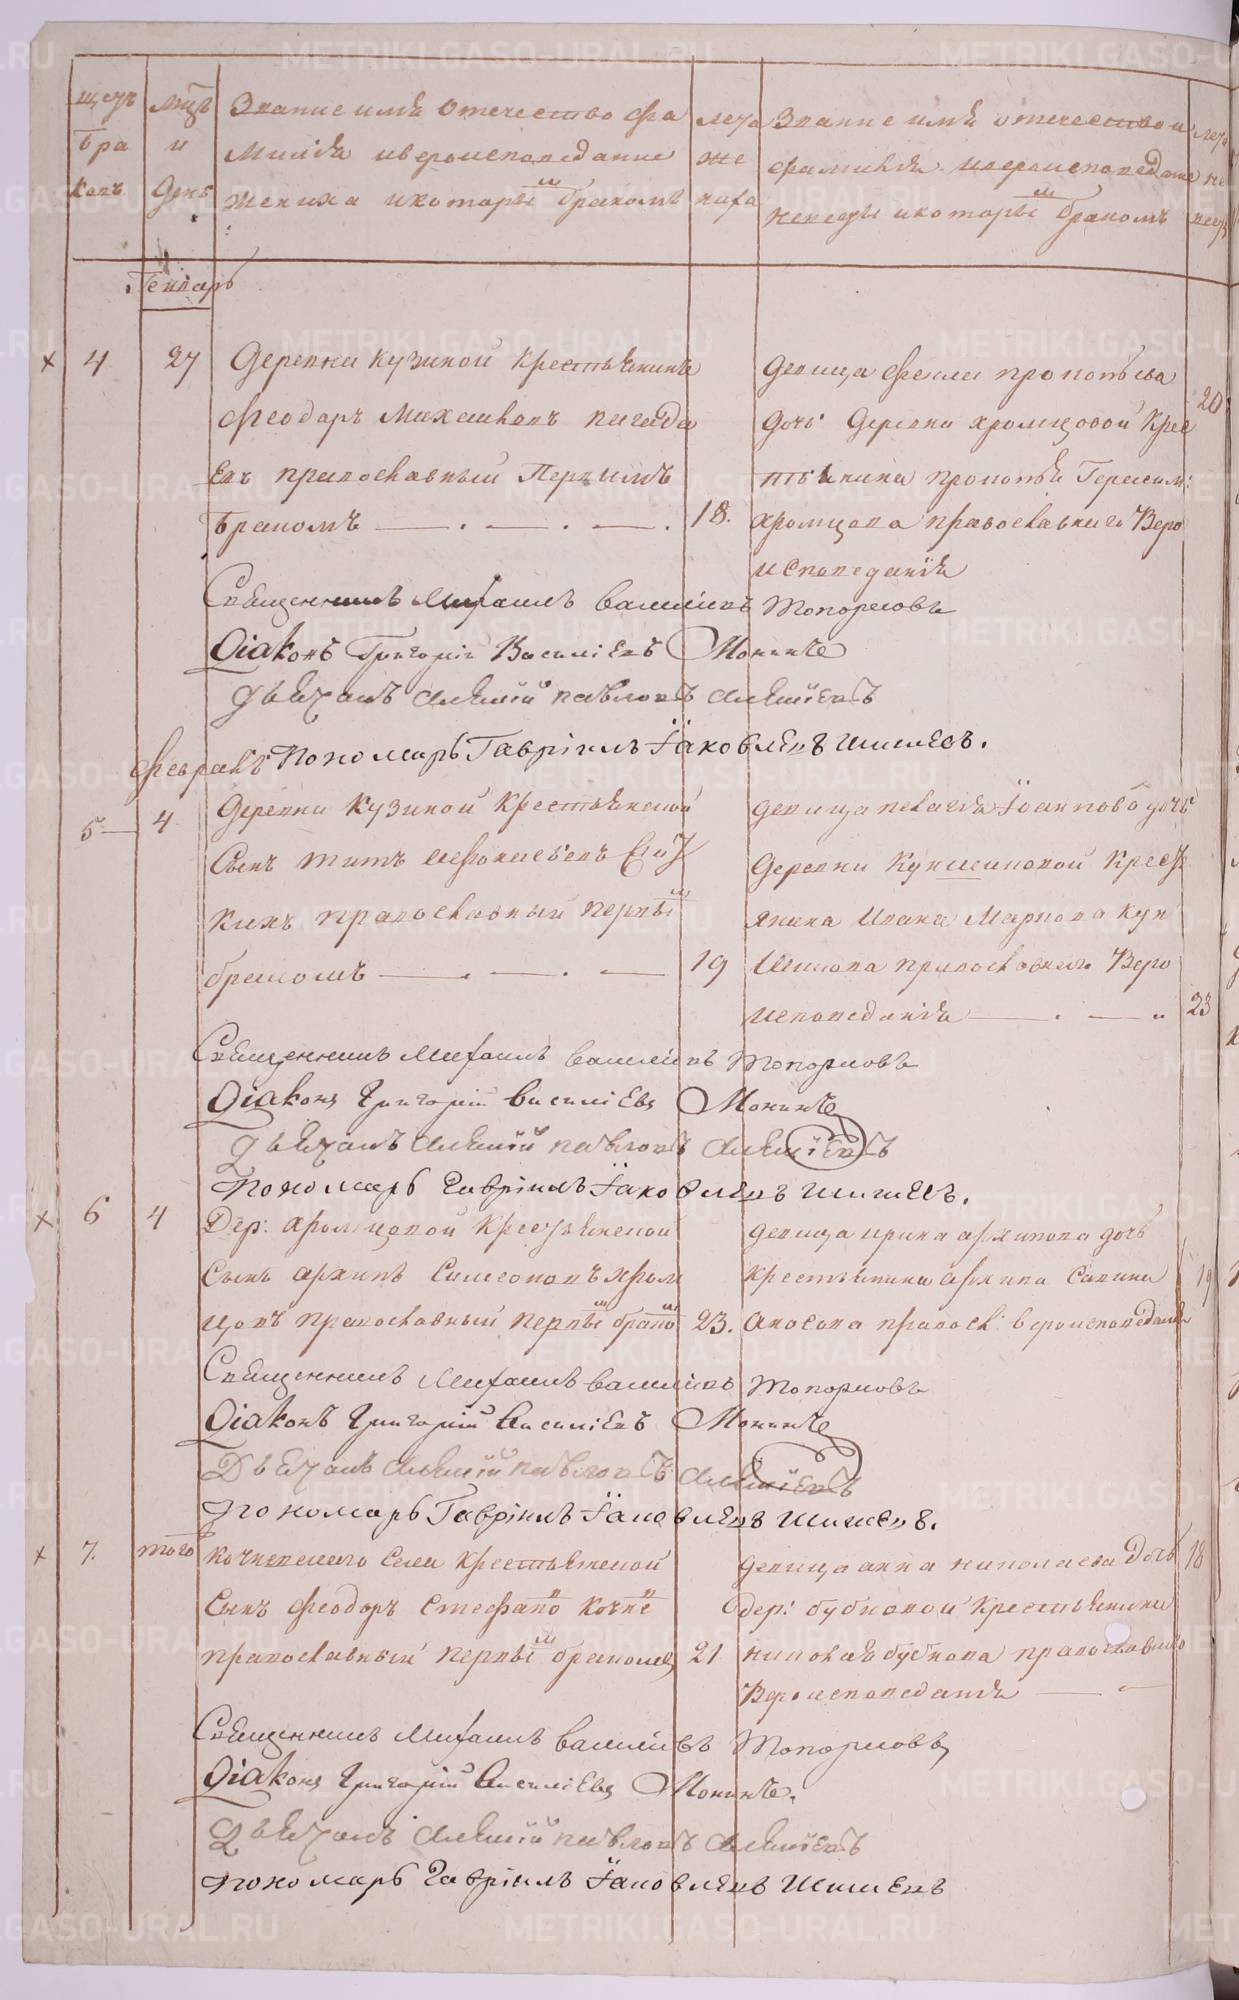 щетъ бра ковъ
мцъ и день
Звание имя отечество фа
милия и вероисповедание
жениха и которы м бракомъ
лета же ниха
Звание имя отечество и
фамилия и вероисповедание
невесты и которы м бракомъ
лета не весты
Генварь
4 27 Деревни Кузиной крестьянинъ
Феодаръ Михайловъ
евъ православный первымъ
бракомъ 18.
девица Прокопьева 20
дочь деревни Хромцовой крес
тьянина Прокопья Герасим:
Хромцова православнаго веро
исповедания
Священникъ Михаилъ Васильевъ Топорковъ
Діаконъ Григорій Василіевъ Мокинъ
Дьячокъ Алексій Павловъ Алексіевъ
Пономарь Гавріилъ Іаковлевъ Шишевъ.
февраль
5 4 Деревни Кузиной крестьянской
сынъ Титъ
кинъ православный первы м
бракомъ 19
девица Пелагея Іоаннова дочь
деревни Кункшиновой крест
янина Ивана Маркова Кун
шинова православнаго веро
исповедания 23
Священникъ Михаилъ Васильевъ Топорковъ
Діаконъ Григорій Василіевъ Мокинъ
Дьячокъ Алексій Павловъ Алексіевъ
Пономарь Гавріилъ Іаковлевъ Шишевъ.
6 4 Дер. Хромцовой крестьянской
сынъ Архипъ Симеоновъ Хром
цовъ православный первы м брако м 23.
девица Ирина Архипова дочь
крестьянина Архипа Савина 19
Аносова правосл: вероисповедания
Священникъ Михаилъ Васильевъ Топорковъ
Діаконъ Григорій Василіевъ Мокинъ
Дьячокъ Алексій Павловъ Алексіевъ
Пономарь Гавріилъ Іаковлевъ Шишевъ.
7. того Кочневскаго села крестьянской
сынъ Феодоръ Стефано в Кочне в
православный первы м бракомъ 21
девица Анна Николаева дочь 18
дер: Бубновой крестьянина
Николая Бубнова православнаго
вероисповедания
Священникъ Михаилъ Васильевъ Топорковъ
Діаконъ Григорій Василіевъ Мокинъ.
Дьячокъ Алексій Павловъ Алексіевъ
Пономарь Гавріилъ Іаковлевъ Шишевъ
METRIKI.GASO-URAL.RU